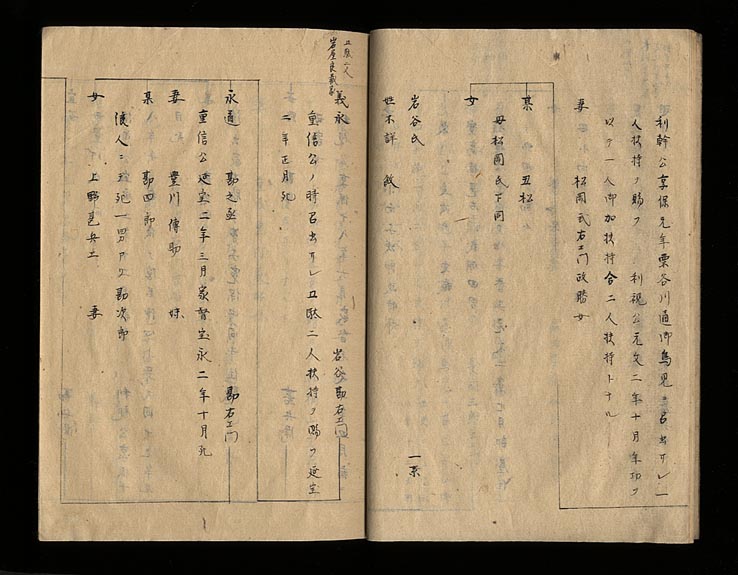 利幹公享保元年粟谷川通御鳥見ニ召出サレ一
人扶持ヲ賜フ 利視公元文二年十月年功ヲ
以テ一人御加扶持合二人扶持トナル
妻 松岡武右エ門政勝女
某 丑松
母松岡氏下同
女
岩谷氏 一系
姓不詳 紋
五駄二人
義永 岩谷勘右エ門
重信公ノ時召出サレ五駄二人扶持ヲ賜フ延宝
二年正月死
永通 勘之丞 勘右エ門
重信公延宝二年三月家督宝永二年十月死
妻 豊川傳助 妹
某 勘四郎
浪人ニ
女 上野 兵士 妻